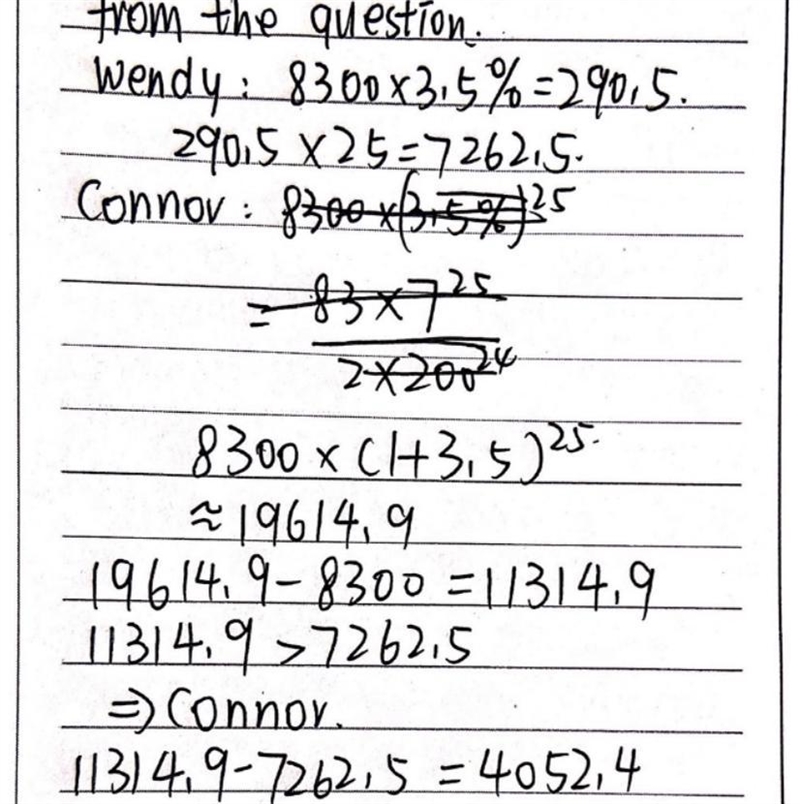 from the question.
Wendy: 8300×3.5%=290.5.
290.5×25=7262.5.
Connor: 8300×(3.5%)^25
= 83×7^25
2×200^24
8300×(1+3.5)^25.
≈19614.9
19614.9-8300=11314.9
11314.9>7262.5
⇒Connor.
11314.9-7262.5=4052.4